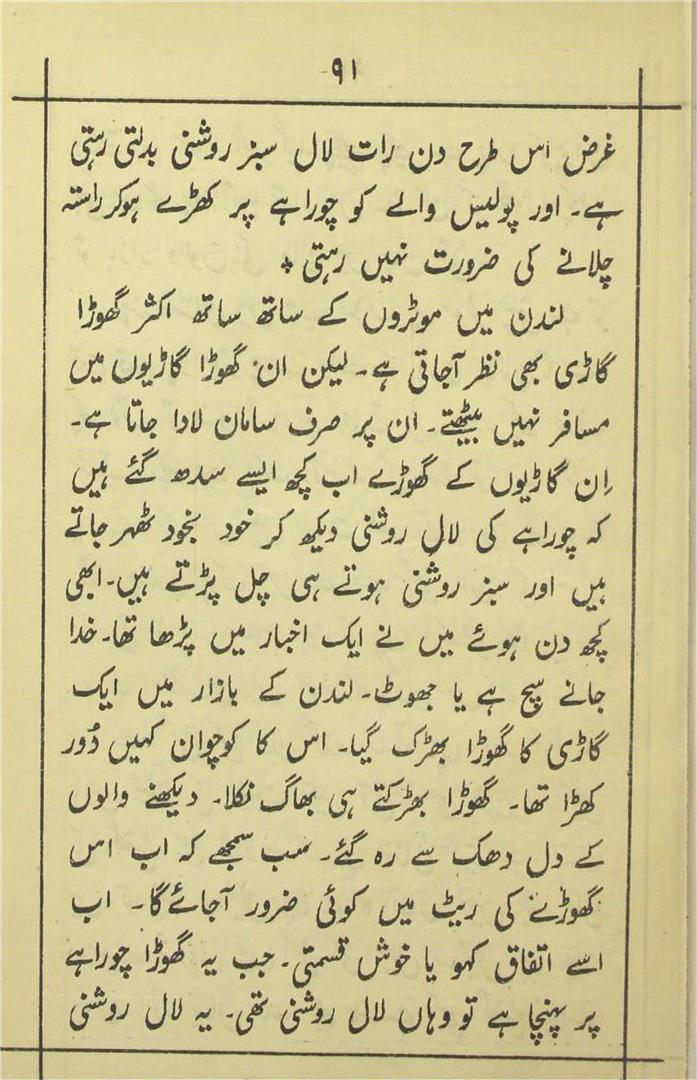 ۹۱
غرض اس طرح دن رات لال سبز روشنی بدلتی رہتی
ہے۔ اور پولیس والے کو چوراہے پر کھڑے ہوکر راستہ
چلانے کی ضرورت نہیں رہتی ٭
لندن میں موٹروں کے ساتھ ساتھ اکثر گھوڑا
گاڑی بھی نظر آجاتی ہے۔ لیکن ان گھوڑا گاڑیوں میں
مسافر نہیں بیٹھتے۔ ان پر صرف سامان لادا جاتا ہے۔
اِن گاڑیوں کے گھوڑے اب کچھ ایسے سدھ گئے ہیں
کہ چوراہے کی لال روشنی دیکھ کر خود بخود ٹھہر جاتے
ہیں اور سبز روشنی ہوتے ہی چل پڑتے ہیں۔ ابھی
کچھ دن ہوئے میں نے ایک اخبار میں پڑھا تھا۔ خدا
جانے سچ ہے یا جھوٹ۔ لندن کے بازار میں ایک
گاڑی کا گھوڑا بھڑک گیا۔ اس کا کوچوان کہیں دُور
کھڑا تھا۔ گھوڑا بھڑکتے ہی بھاگ نکلا۔ دیکھنے والوں
کے دل دھک سے رہ گئے۔ سب سمجھے کہ اب اس
گھوڑے کی ریٹ میں کوئی ضرور آجائے گا۔ اب
اسے اتفاق کہو یا خوش قسمتی۔ جب یہ گھوڑا چوراہے
پر پہنچا ہے تو وہاں لال روشنی تھی۔ یہ لال روشنی